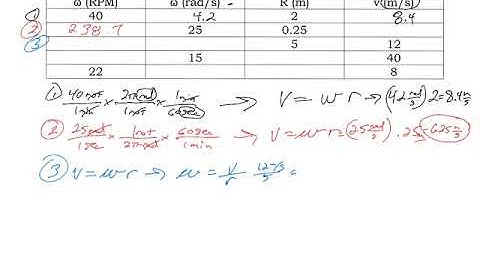 ω (RPM) ω (rad/s) R (m) v (m/s)
① 40 4.2 2 8.4
② 238.7 25 0.25
③ 5 12
15 40
22 8
① 40rot/1min × 2π rad/1rot × 1min/60sec → v = wr → (4.2 rad/s) 2 = 8.4 m/s
② 25rad/1sec × 1rot/2π rad × 60sec/1min → v = wr = (25 rad/s) · .25m = 6.25 m/s
③ v = wr → w = v/r 12 m/s/5 =